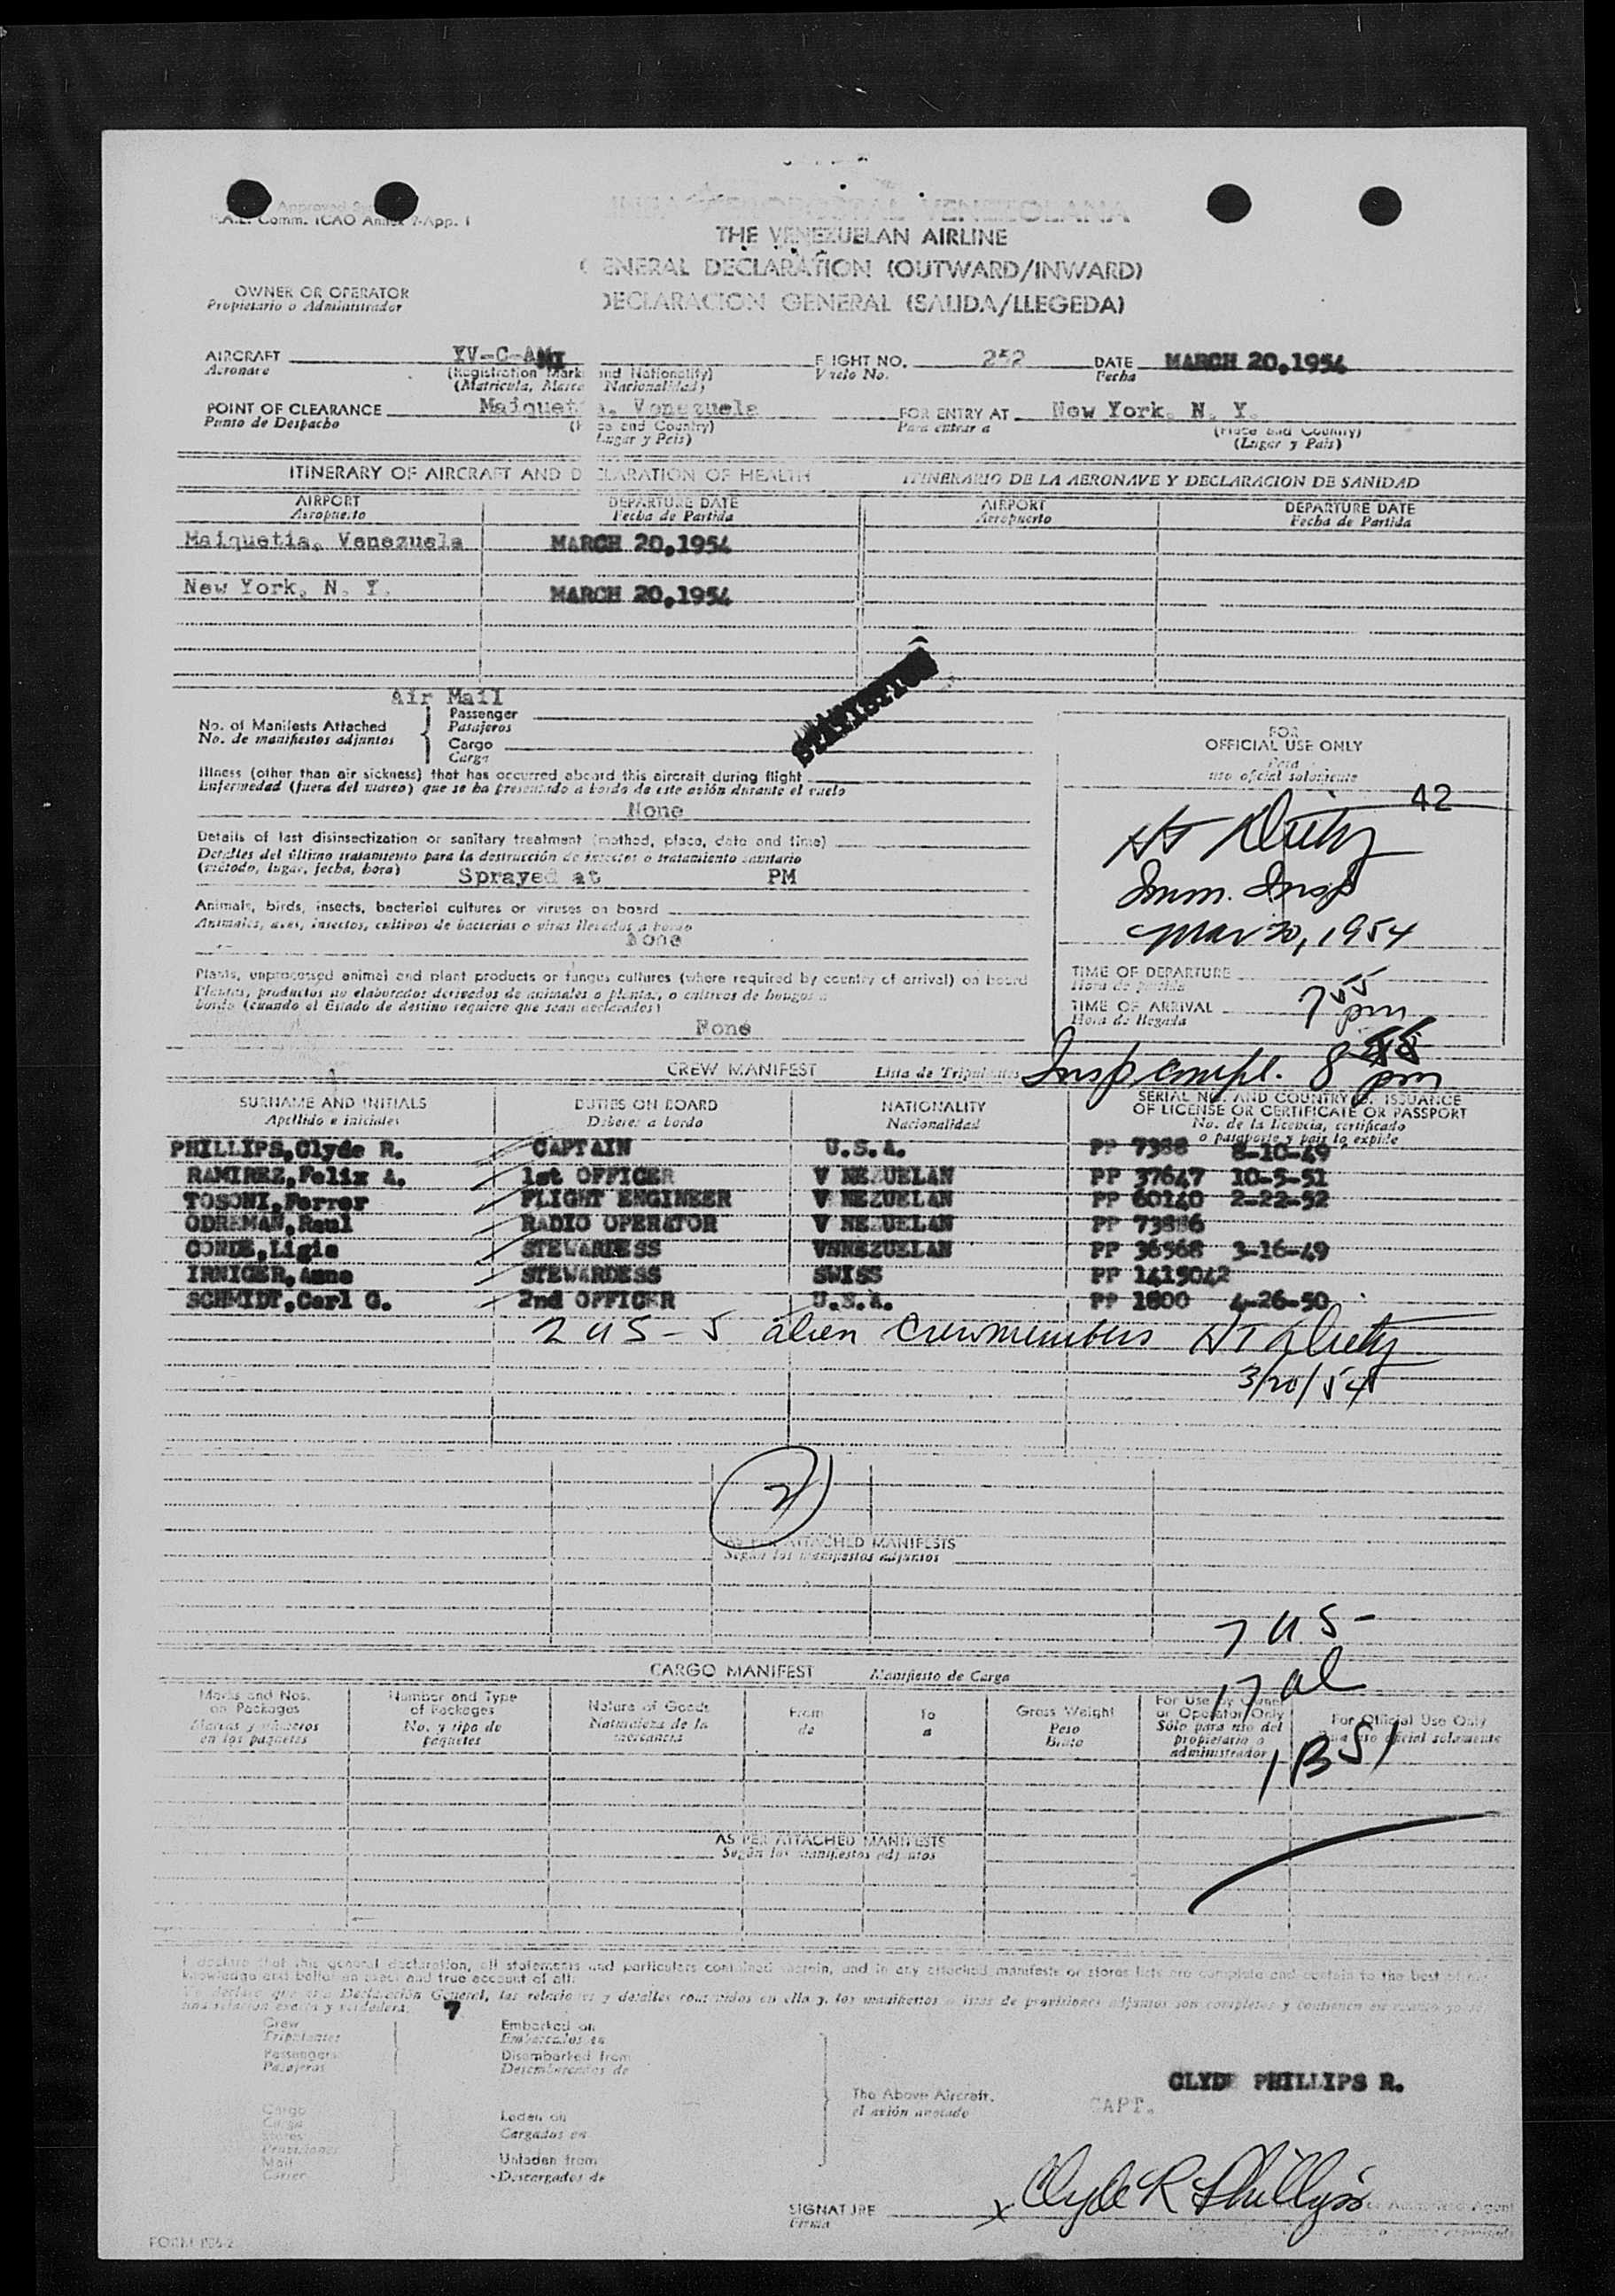 Approved
Comm. ICAO Annex 9-App. 1
VENEZOLANA
THE VENEZUELAN AIRLINE
GENERAL DECLARATION (OUTWARD/INWARD)
DECLARACION GENERAL (SALIDA/LLEGEDA)
OWNER OR OPERATOR
Propietario o Administrador
AIRCRAFT YV-C-AMI FLIGHT NO. 252 DATE MARCH 20,1954
Aeronave (Registration Marks and Nationality) Vuelo No. Fecha
(Matricula, Marca Nacionalidad)
POINT OF CLEARANCE Maiquetia, Venezuela FOR ENTRY AT New York, N. Y.
Punto de Despacho (Place and Country) Para entrar a (Place and Country)
(Lugar y Pais) (Lugar y Pais)
ITINERARY OF AIRCRAFT AND DECLARATION OF HEALTH ITINERARIO DE LA AERONAVE Y DECLARACION DE SANIDAD
AIRPORT DEPARTURE DATE AIRPORT DEPARTURE DATE
Aeropuerto Fecha de Partida Aeropuerto Fecha de Partida
Maiquetia, Venezuela MARCH 20,1954
New York, N. Y. MARCH 20,1954
STATISTICS
Air Mail
No. of Manifests Attached Passenger
No. de manifiestos adjuntos Pasajeros
Cargo
Carga
Illness (other than air sickness) that has occurred aboard this aircraft during flight
Enfermedad (fuera del mareo) que se ha presentado a bordo de este avión durante el vuelo
None
Details of last disinsectization or sanitary treatment (method, place, date and time)
Detalles del último tratamiento para la destrucción de insectos o tratamiento sanitario
(método, lugar, fecha, hora) Sprayed at PM
Animals, birds, insects, bacterial cultures or viruses on board
Animales, aves, insectos, cultivos de bacterias o virus llevados a bordo
None
Plants, unprocessed animal and plant products or fungus cultures (where required by country of arrival) on board
Plantas, productos no elaborados derivados de animales o plantas, o cultivos de hongos a
bordo (cuando el Estado de destino requiere que sean declarados)
None
FOR
OFFICIAL USE ONLY
Para
uso oficial solamente
42
HT Dietz
Imm. Insp
Mar 20, 1954
TIME OF DEPARTURE
Hora de partida
TIME OF ARRIVAL 7 55 pm
Hora de llegada
Insp compl. 8 pm
CREW MANIFEST Lista de Tripulantes
SURNAME AND INITIALS DUTIES ON BOARD NATIONALITY SERIAL NO. AND COUNTRY OF ISSUANCE
OF LICENSE OR CERTIFICATE OR PASSPORT
Apellido e iniciales Deberes a bordo Nacionalidad No. de la licencia, certificado
o pasaporte y pais lo expide
PHILLIPS,Clyde R. CAPTAIN U.S.A. PP 7388 8-10-49
RAMIREZ,Felix A. 1st OFFICER V NEZUELAN PP 37647 10-5-51
TOSONI,Ferrer FLIGHT ENGINEER V NEZUELAN PP 60140 2-22-52
ODREMAN,Raul RADIO OPERATOR V NEZUELAN PP 73886
CONDE,Ligia STEWARDESS VENEZUELAN PP 36568 3-16-49
IRNIGER,Anne STEWARDESS SWISS PP 1415042
SCHMIDT,Carl G. 2nd OFFICER U.S.A. PP 1800 4-26-50
2 US - 5 alien crewmembers HT Dietz
3/20/54
2
AS PER ATTACHED MANIFESTS
Según los manifiestos adjuntos
7 US-
17 al
1 BSI
CARGO MANIFEST Manifiesto de Carga
Marks and Nos. Number and Type Nature of Goods From To Gross Weight For Use by Owner For Official Use Only
on Packages of Packages Naturaleza de la de a Peso or Operator Only Para uso oficial solamente
Marcas y números No. y tipo de mercancia Bruto Sólo para uso del
en los paquetes paquetes propietario o
administrador
AS PER ATTACHED MANIFESTS
Según los manifiestos adjuntos
I declare that this general declaration, all statements and particulars contained herein, and in any attached manifests or stores lists are complete and contain to the best of my
knowledge and belief an exact and true account of all:
7
Crew Embarked on
Tripulantes Embarcados en
Passengers Disembarked from
Pasajeros Desembarcados de
Cargo Laden on
Carga Cargados en
Stores
Provisiones
Mail Unladen from
Correo Descargados de
The Above Aircraft.
el avión anotado
CLYDE PHILLIPS R.
CAPT.
SIGNATURE x Clyde R Phillips or Authorized Agent
Firma